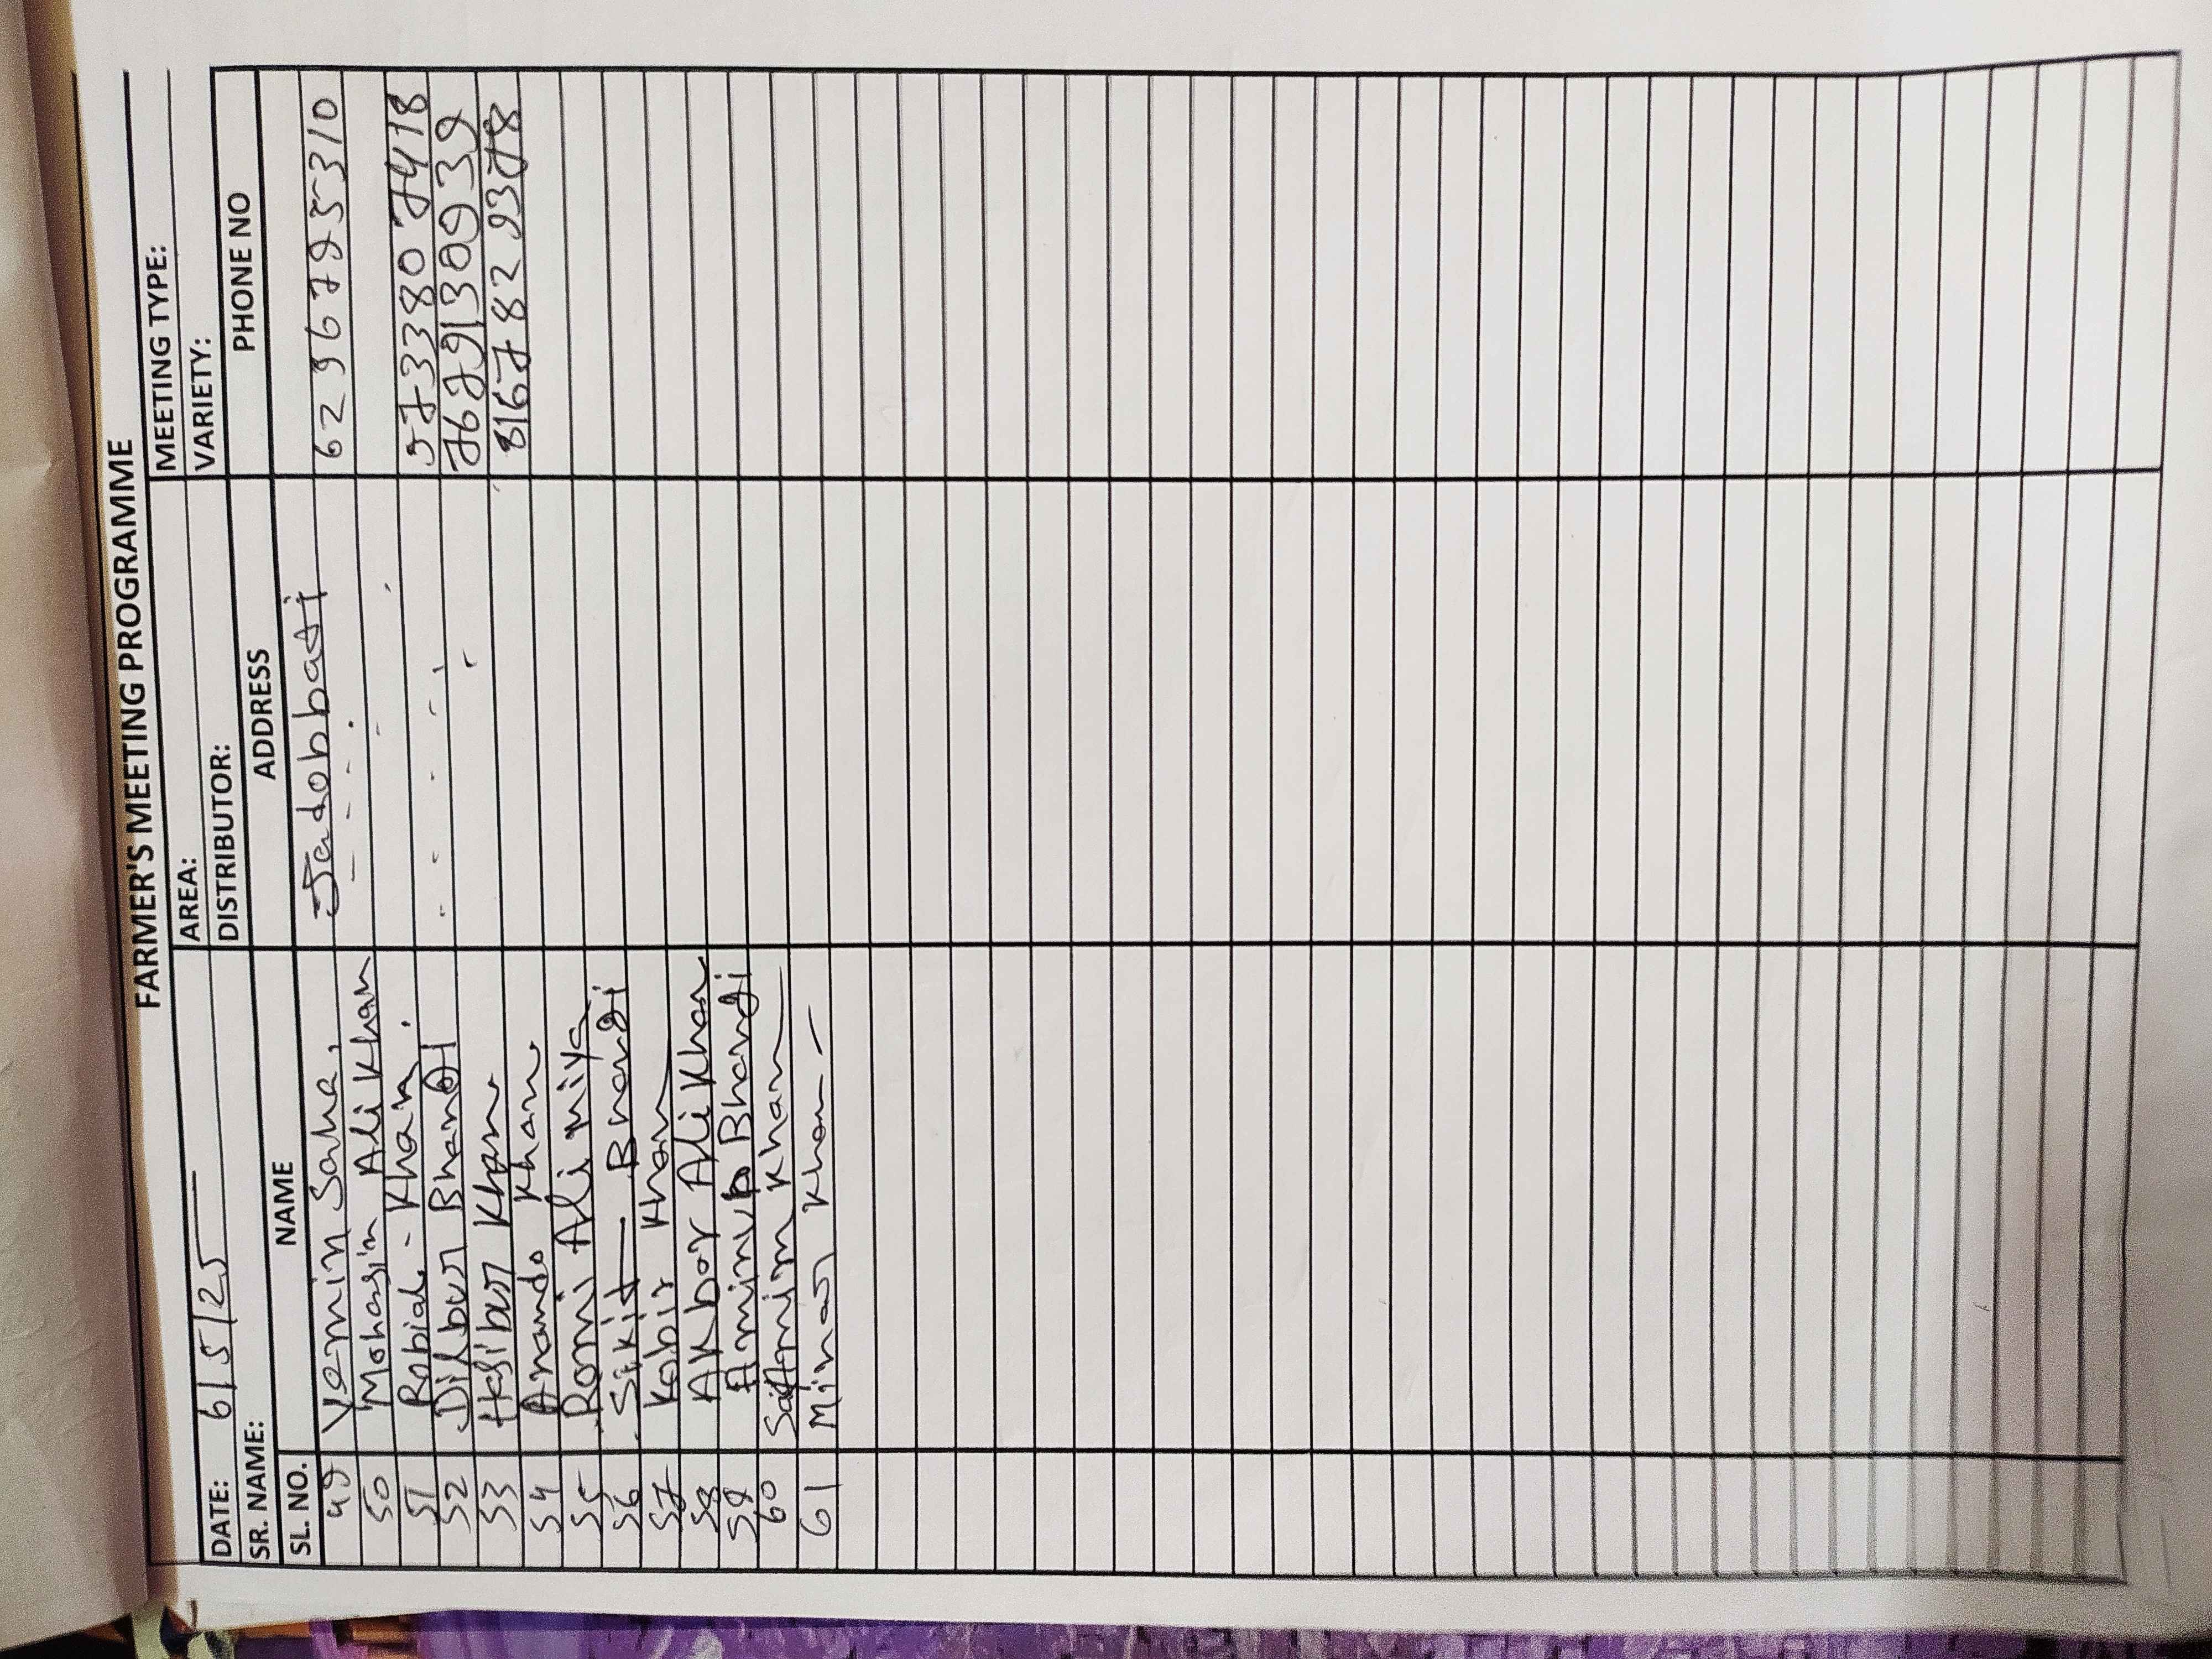 FARMER'S MEETING PROGRAMME
DATE: 6/5/25 AREA: MEETING TYPE:
SR. NAME: DISTRIBUTOR: VARIETY:
SL. NO. NAME ADDRESS PHONE NO
49 Yeamin Saha, Jadobbati 6296795310
50 Mohasin Ali Khan
51 Robial - Khan. 9733807418
52 Dilbur Bhandi 7679130939
53 Hasibur Khan 8167829378
54 Anando Khan
55 Romi Ali Miya
56 Sikit Bhandi
57 Kobir Khan
58 AKbor Ali Khan
59 Bhandi
60 Khan
61 Minar Khan